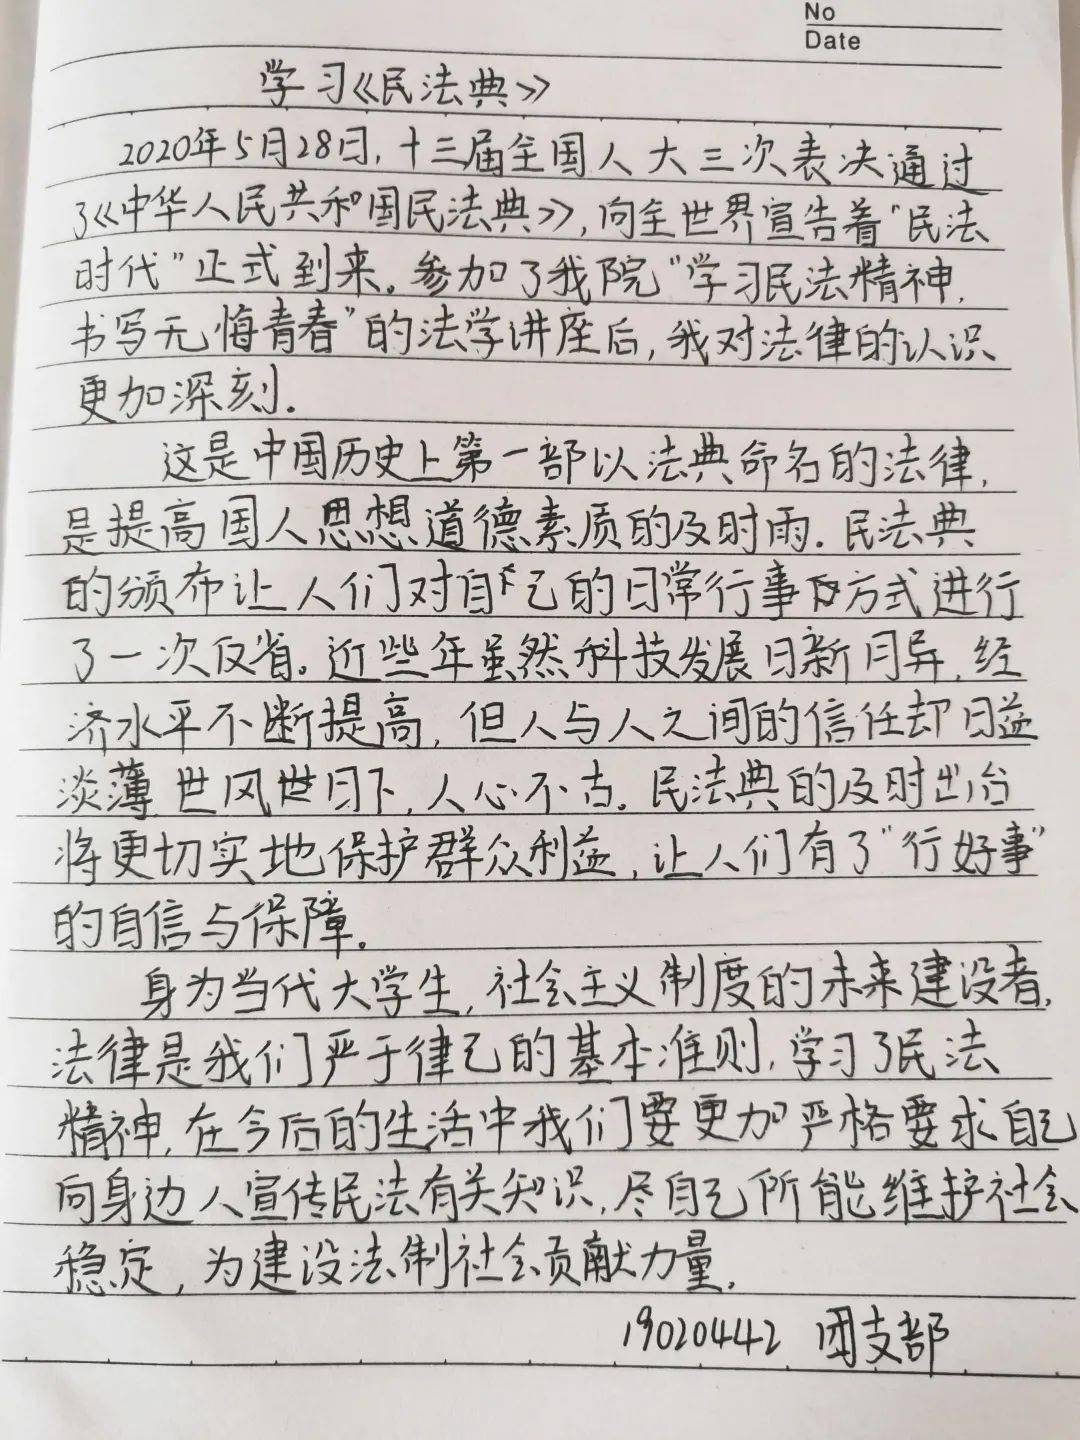 No
Date
学习《民法典》
2020年5月28日,十三届全国人大三次表决通过
了《中华人民共和国民法典》,向全世界宣告着“民法
时代”正式到来。参加了我院“学习民法精神,
书写无悔青春”的法学讲座后,我对法律的认识
更加深刻.
这是中国历史上第一部以法典命名的法律,
是提高国人思想道德素质的及时雨.民法典
的颁布让人们对自己的日常行事方式进行
了一次反省。近些年虽然科技发展日新月异,经
济水平不断提高,但人与人之间的信任却日益
淡薄,世风世日下,人心不古.民法典的及时出台
将更切实地保护群众利益,让人们有了“行好事”
的自信与保障.
身为当代大学生,社会主义制度的未来建设者,
法律是我们严于律己的基本准则,学习了民法
精神,在今后的生活中我们要更加严格要求自己
向身边人宣传民法有关知识,尽自己所能维护社会
稳定,为建设法制社会贡献力量.
19020442 团支部